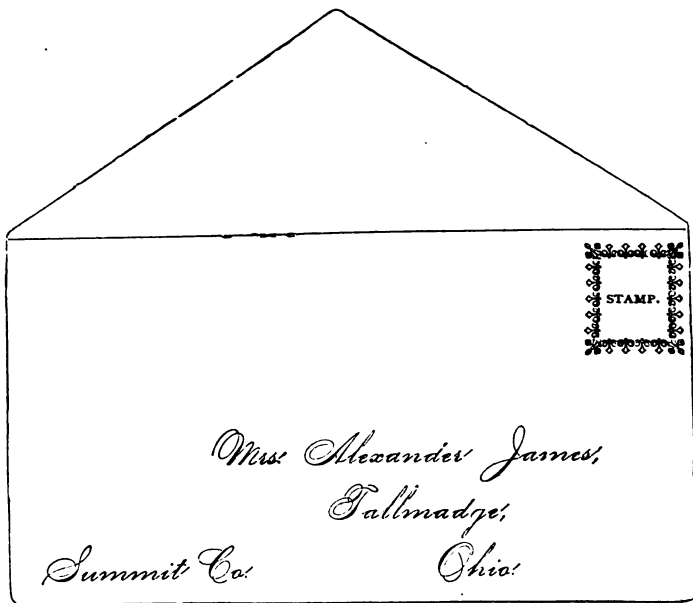 STAMP.
Mrs. Alexander James,
Tallmadge,
Summit Co. Ohio.